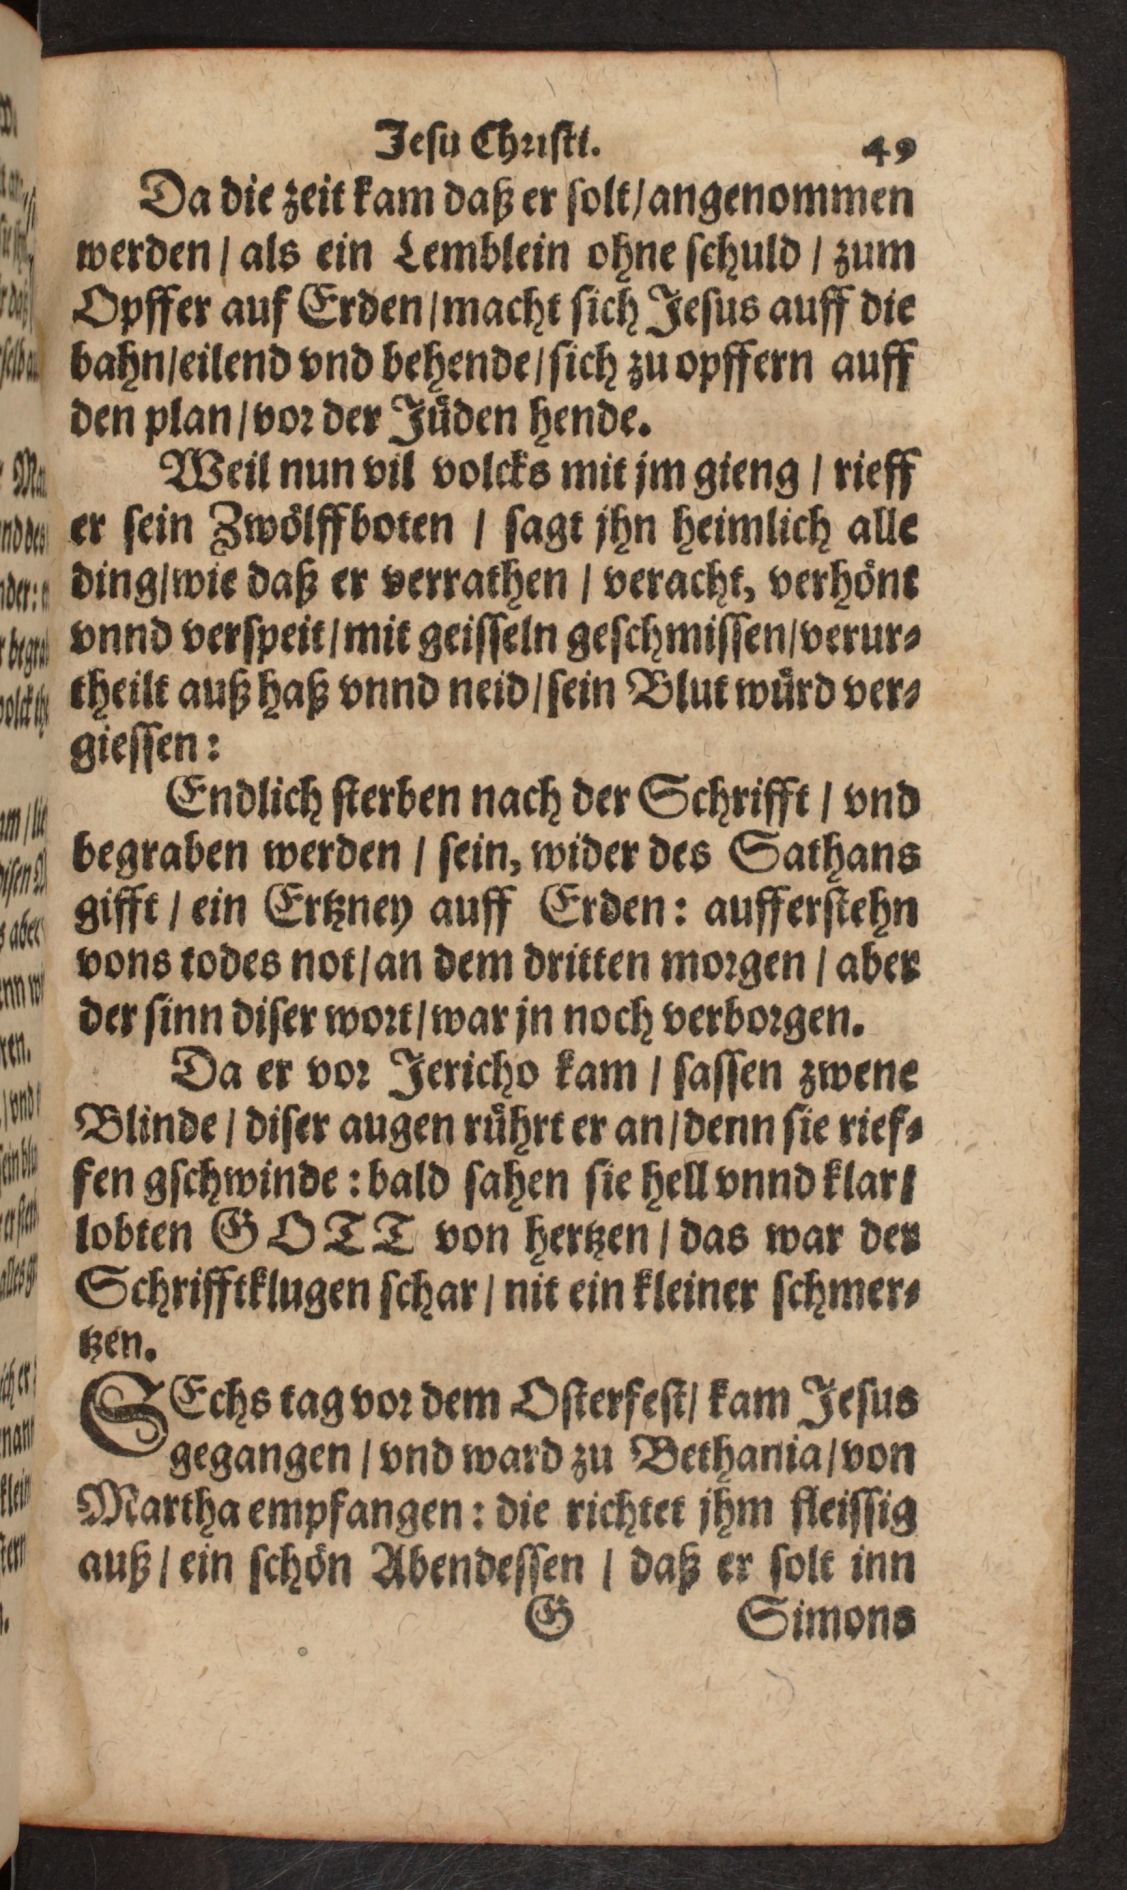 Jesu Christi. 49
Da die zeit kam daß er solt/angenommen
werden / als ein Lemblein ohne schuld / zum
Opffer auf Erden/macht sich Jesus auff die
bahn/eilend vnd behende/sich zu opffern auff
den plan/vor der Jüden hende.
Weil nun vil volcks mit jm gieng / rieff
er sein Zwölffboten / sagt jhn heimlich alle
ding/wie daß er verrathen / veracht, verhönt
vnnd verspeit/mit geisseln geschmissen/verur-
theilt auß haß vnnd neid/sein Blut würd ver-
giessen:
Endlich sterben nach der Schrifft / vnd
begraben werden / sein, wider des Sathans
gifft / ein Ertzney auff Erden: aufferstehn
vons todes not/an dem dritten morgen / aber
der sinn diser wort/war jn noch verborgen.
Da er vor Jericho kam / sassen zwene
Blinde / diser augen rührt er an/denn sie rief-
fen gschwinde: bald sahen sie hell vnnd klar/
lobten GOTT von hertzen / das war der
Schrifftklugen schar / nit ein kleiner schmer-
tzen.
SEchs tag vor dem Osterfest/ kam Jesus
gegangen / vnd ward zu Bethania/von
Martha empfangen: die richtet jhm fleissig
auß / ein schön Abendessen / daß er solt inn
G Simons